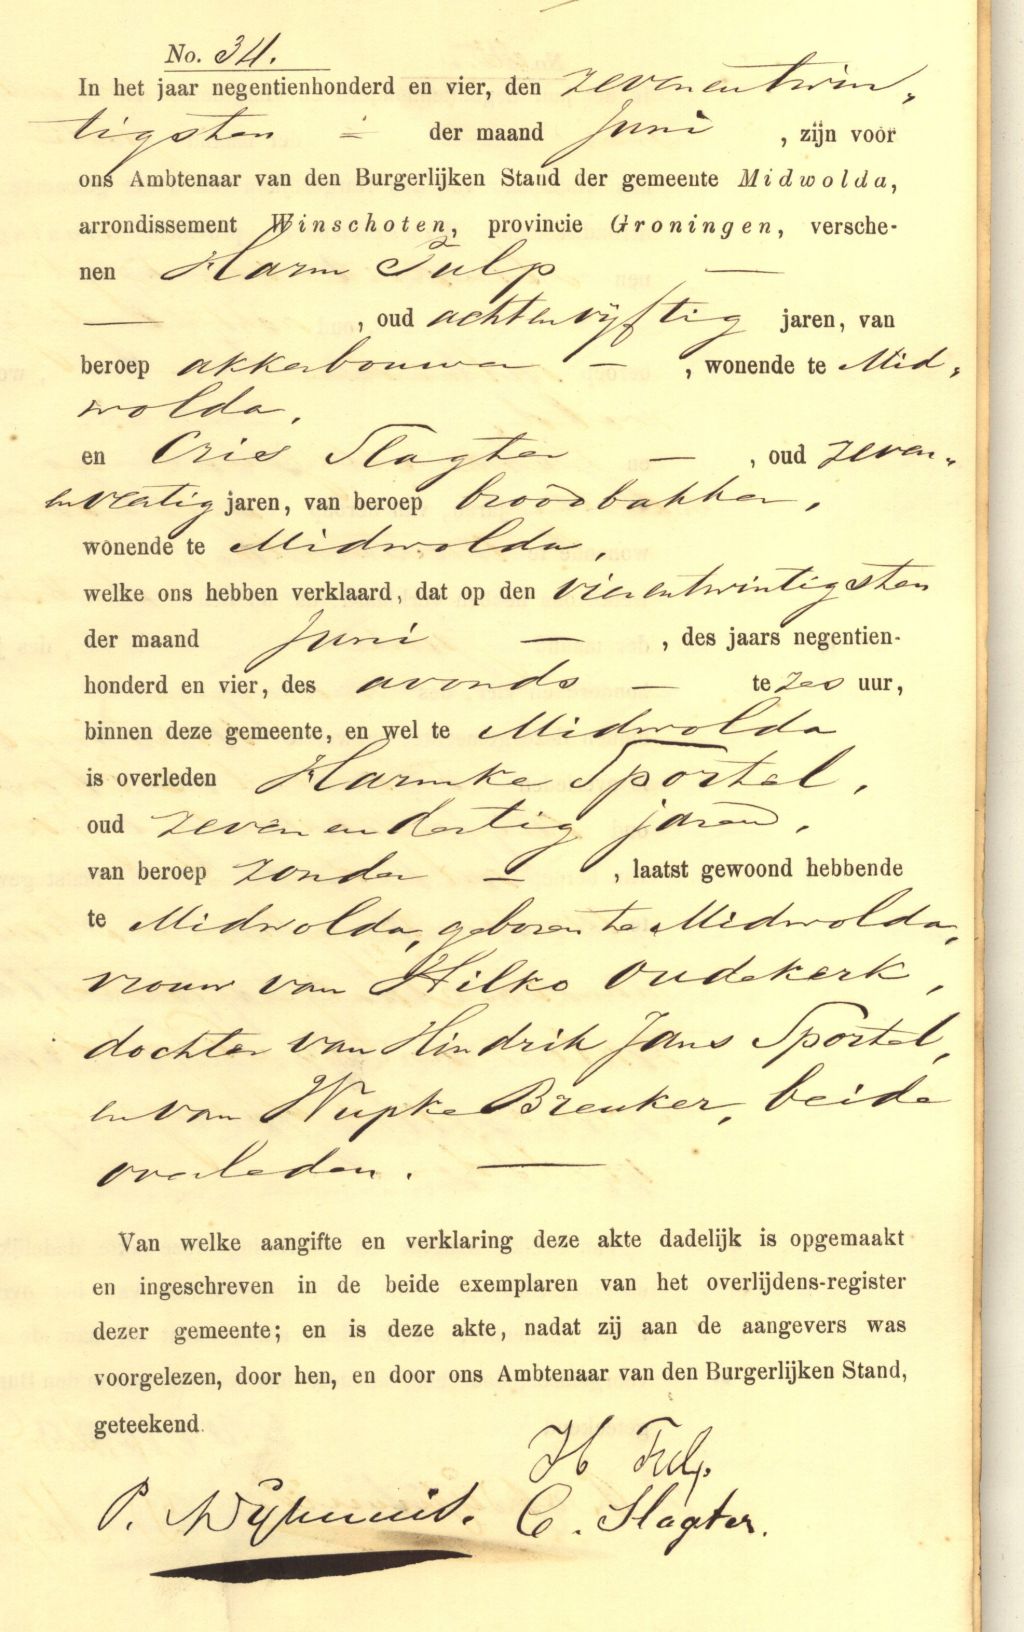 No. 34.
In het jaar negentienhonderd en vier, den zevenentwin-
tigsten der maand Juni, zijn voor
ons Ambtenaar van den Burgerlijken Stand der gemeente Midwolda,
arrondissement Winschoten, provincie Groningen, versche-
nen Harm Tulp —
— , oud achtenvijftig jaren, van
beroep akkerbouwer — , wonende te Mid-
wolda,
en Cries Slagter — , oud zeven-
enveertig jaren, van beroep broodbakker,
wonende te Midwolda,
welke ons hebben verklaard, dat op den vierentwintigsten
der maand Juni — , des jaars negentien-
honderd en vier, des avonds — te zes uur,
binnen deze gemeente, en wel te Midwolda
is overleden Harmke Sportel,
oud zevenendertig jaren,
van beroep zonder — , laatst gewoond hebbende
te Midwolda, geboren te Midwolda,
vrouw van Hilko Oudekerk,
dochter van Hindrik Jans Sportel,
en van Wupke Breuker, beide
overleden. —
Van welke aangifte en verklaring deze akte dadelijk is opgemaakt
en ingeschreven in de beide exemplaren van het overlijdens-register
dezer gemeente; en is deze akte, nadat zij aan de aangevers was
voorgelezen, door hen, en door ons Ambtenaar van den Burgerlijken Stand,
geteekend.
H Tulp.
P. C. Slagter.